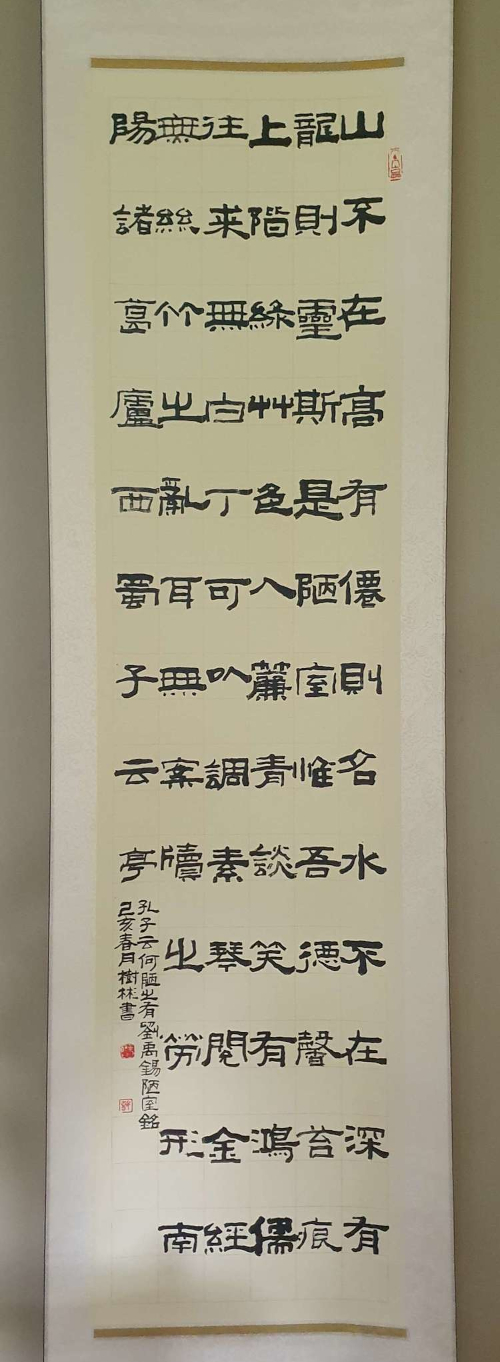 山不在高有僊則名水不在深有
龍則靈斯是陋室惟吾德馨苔痕
上階綠艸色入簾青談笑有鴻儒
往来無白丁可以調素琴閱金經
無絲竹之亂耳無案牘之勞形南
陽諸葛廬西蜀子云亭
孔子云何陋之有劉禹錫陋室銘
己亥春月樹彬書